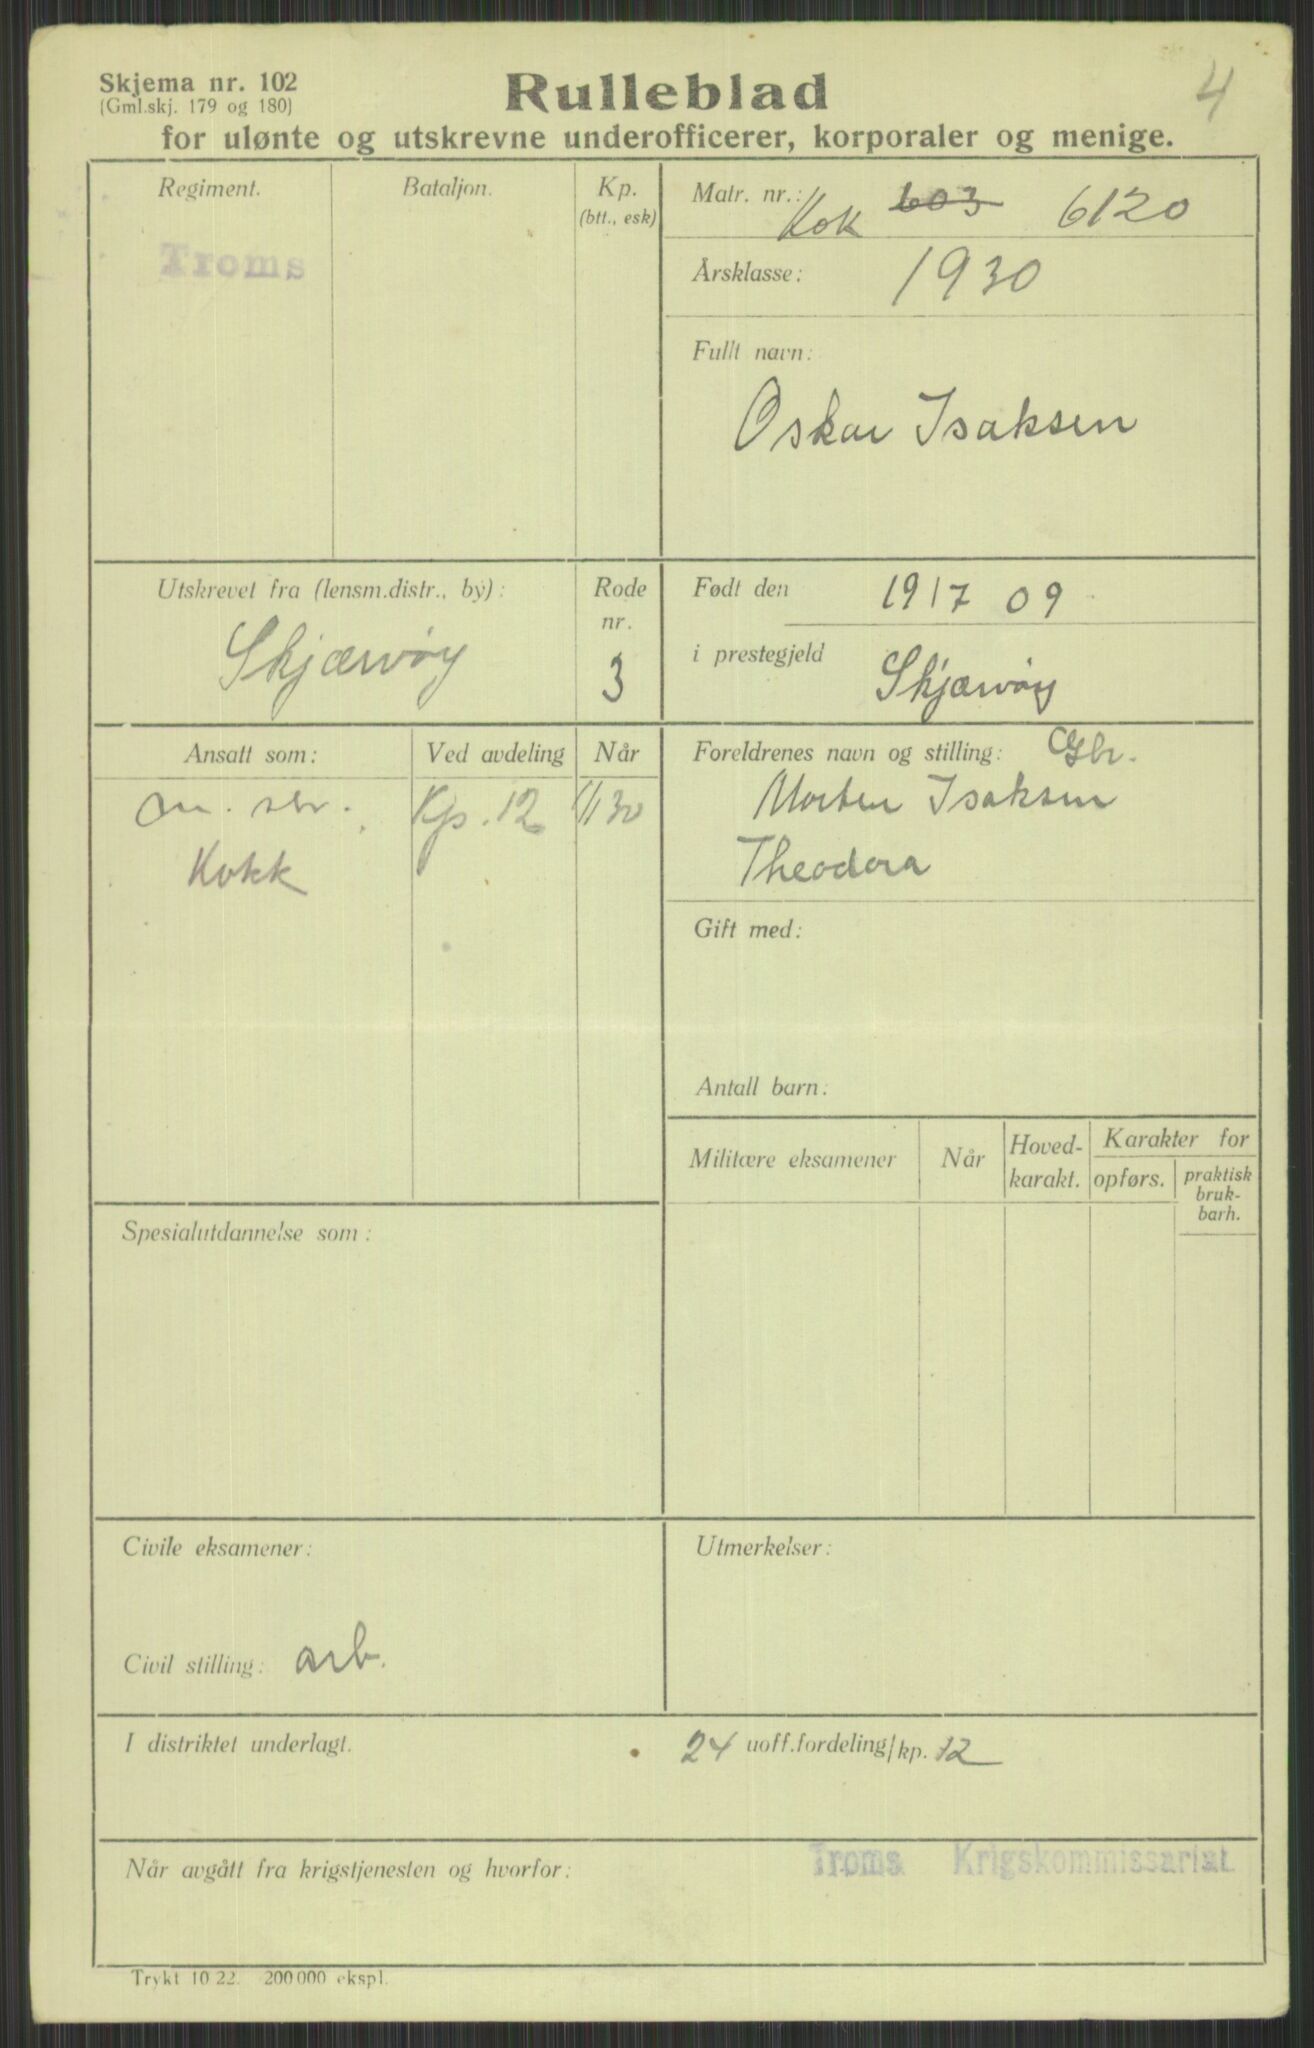 Skjema nr. 102
(Gml.skj. 179 og 180)
Rulleblad
4
for ulønte og utskrevne underofficerer, korporaler og menige.
Regiment.
Bataljon.
Kp.
(btt., esk)
Troms
Matr. nr.: Kok 603 6120
Årsklasse: 1930
Fullt navn:
Oskar Isaksen
Utskrevet fra (lensm.distr., by):
Skjærvøy
Rode
nr.
3
Født den 19 17 09
i prestegjeld Skjærvøy
Ansatt som:
Ved avdeling
Når
Kp. 12
1/1 30
Kokk
Foreldrenes navn og stilling: Gbr.
Morten Isaksen
Theodora
Gift med:
Antall barn:
Militære eksamener
Når
Hoved-
karakt.
Karakter for
opførs.
praktisk
bruk-
barh.
Spesialutdannelse som:
Civile eksamener:
Civil stilling: arb.
Utmerkelser:
I distriktet underlagt.
24 uoff.fordeling/kp. 12
Når avgått fra krigstjenesten og hvorfor:
Troms Krigskommissariat
Trykt 10 22. 200 000 ekspl.